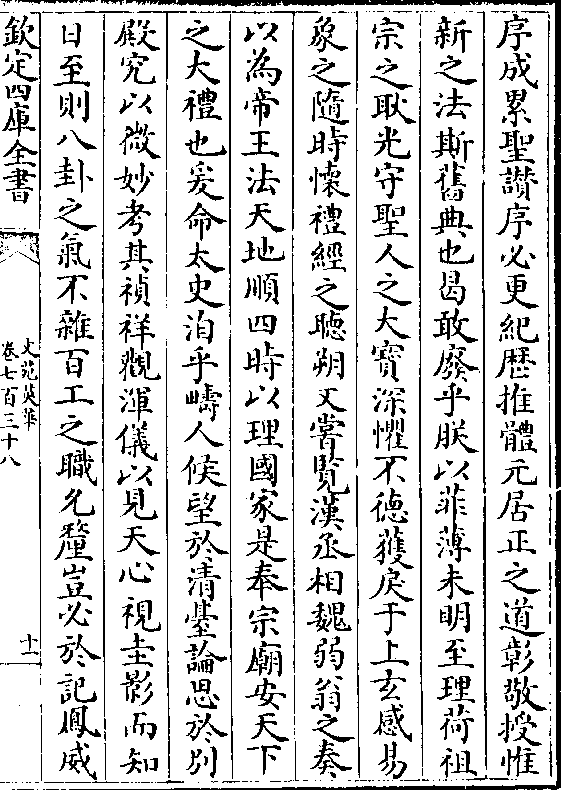 序成累聖讃序必更紀歴推體元居正之道彰敬授惟
新之法斯舊典也曷敢廢乎朕以菲薄未明至理荷祖
宗之耿光守聖人之大寳深懼不德獲戾于上玄感易
象之隨時懐禮經之聽朔又嘗覧漢丞相魏弱翁之奏
以為帝王法天地順四時以理國家是奉宗廟安天下
之大禮也爰命太史洎乎疇人候望於清臺論思於别
殿究以微妙考其禎祥觀渾儀以見天心視圭影而知
日至則八卦之氣不雜百工之職允釐豈必於記鳳威
欽定四庫全書
文苑英華
卷七百三十八
十一